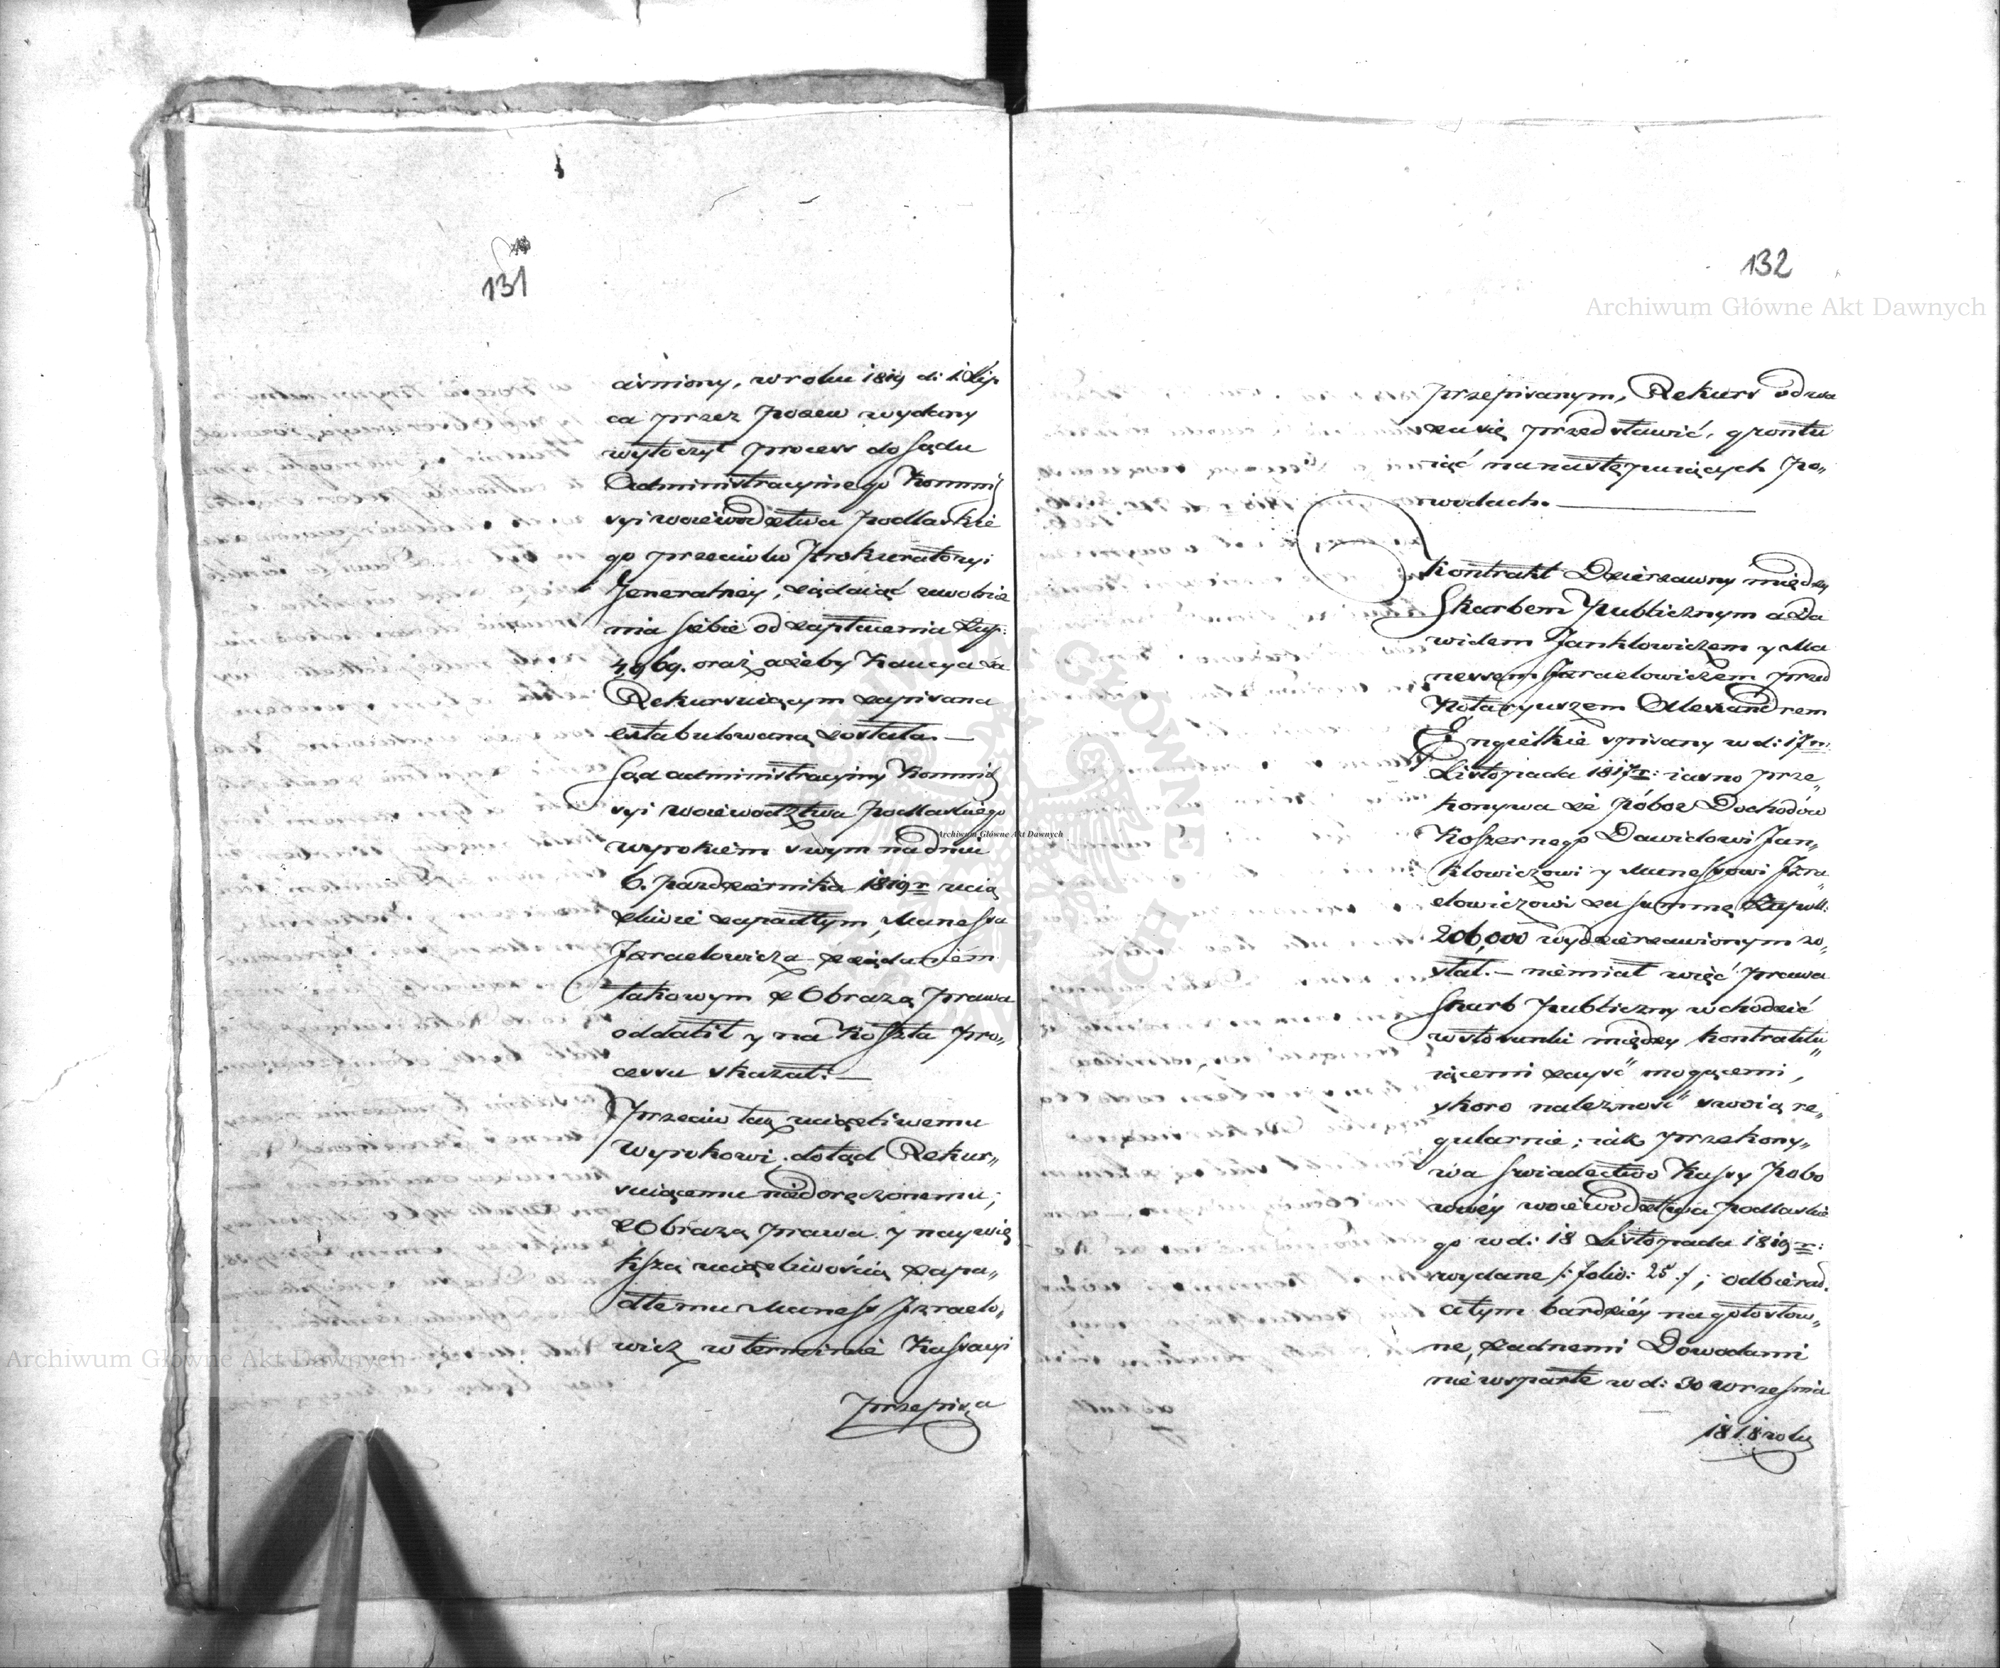 131
ciśniony, w roku 1819 d: 1 Lip
ca przez pozew wydany
wytoczył process do Sądu
Administracyinego Kommis
syi woiewodztwa Podlaskie
go przeciwko Prokuratoryi
Jeneralney, żądaiąć uwolnie
nia siebie od zapłacenia Złp:
4,969. oraz ażeby Kaucya za
Rekursuiącym zapisana
extabulowaną została. —
Sąd administracyiny Kommis
syi Woiewodztwa Podlaskiego
wyrokiem swym na dniu
6. Października 1819 r ucią
żliwie zapadłym, Manessa
Izraelowicza z żądaniem
takowym z Obrazą prawa
oddalił y na Koszta pro„
cessu skazał. —
Przeciw tak uciążliwemu
Wyrokowi, dotąd Rekur„
suiącemu niedoręczonemu;
z Obrazą prawa y naywię
kszą uciążliwością zapa„
dłemu Maness Izraelo„
wicz w terminie Kassacyi
przepisa
132
Archiwum Główne Akt Dawnych
przepisanym, Rekurs odwa
ża się przedstawić, gruntu
iąć na następuiących po„
wodach. —
Kontrakt Dzierżawny między
Skarbem Publicznym a Da
widem Janklowiczem y Ma
nessem Izraelowiczem przed
Notaryuszem Alexandrem
Engielkie spisany w d: 17 m:
Listopada 1817 r: iasno prze„
konywa że pobor Dochodów
Koszernego Dawidowi Jan„
klowiczowi y Manessowi Izra„
elowiczowi za summę Złpoll:
206,000 wydzierżawionym zo„
stał. — niemiał więć prawa
Skarb Publiczny wchodzić
w stosunki między kontraktu„
iącemi zayść mogącemi,
skoro należność swoią re„
gularnie; iak przekony„
wa świadectwo Kassy Pobo
rowéy woiewodztwa Podlaskie
go w d: 18 Listopada 1819 r:
wydane /: folio: 25 :/; odbierał.
a tym bardziéy na gołosłow„
ne, żadnemi Dowodami
nie wsparte w d: 30 września
1818 roku
Archiwum Główne Akt Dawnych
Archiwum Główne Akt Dawnych